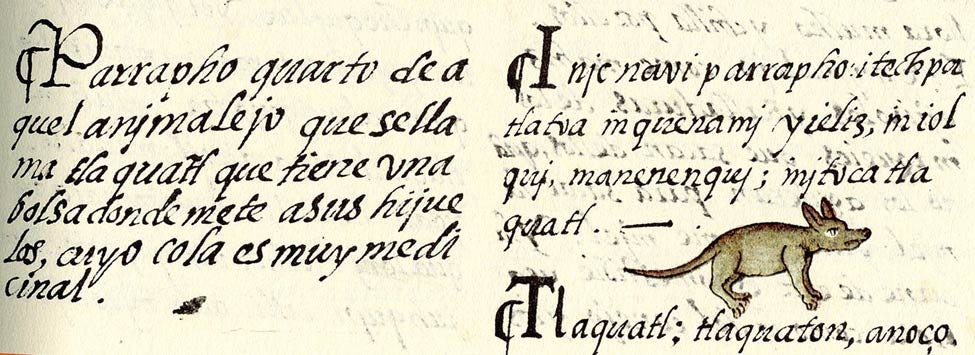 ¶Parrapho quarto de a
quel animalejo que se lla
ma tlaquatl que tiene vna
bolsa donde mete a sus hijue
los, cuyo cola es muy medi
cinal.
¶Injc navi parrapho: itechpa
tlatoa in quenamj yieliz, in iol
quj, manenenquj; mjtoca tla
quatl.
¶Tlaquatl; tlaquaton, anoço.